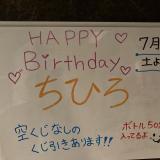 HAPPY
Birthday
ちひろ
7月
土よ
空くじなしの
くじ引きあります!!
ボトル50
入ってるよ